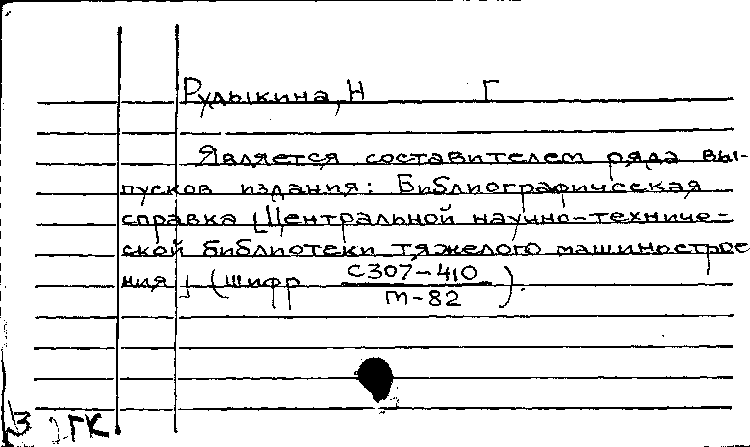 Рудыкина, Н Г
Является составителем ряда вы-
пусков издания: Библиографическая
справка [Центральной научно-техниче-
ской библиотеки тяжелого машинострое
ния] (шифр С307-410/м-82).
ГК